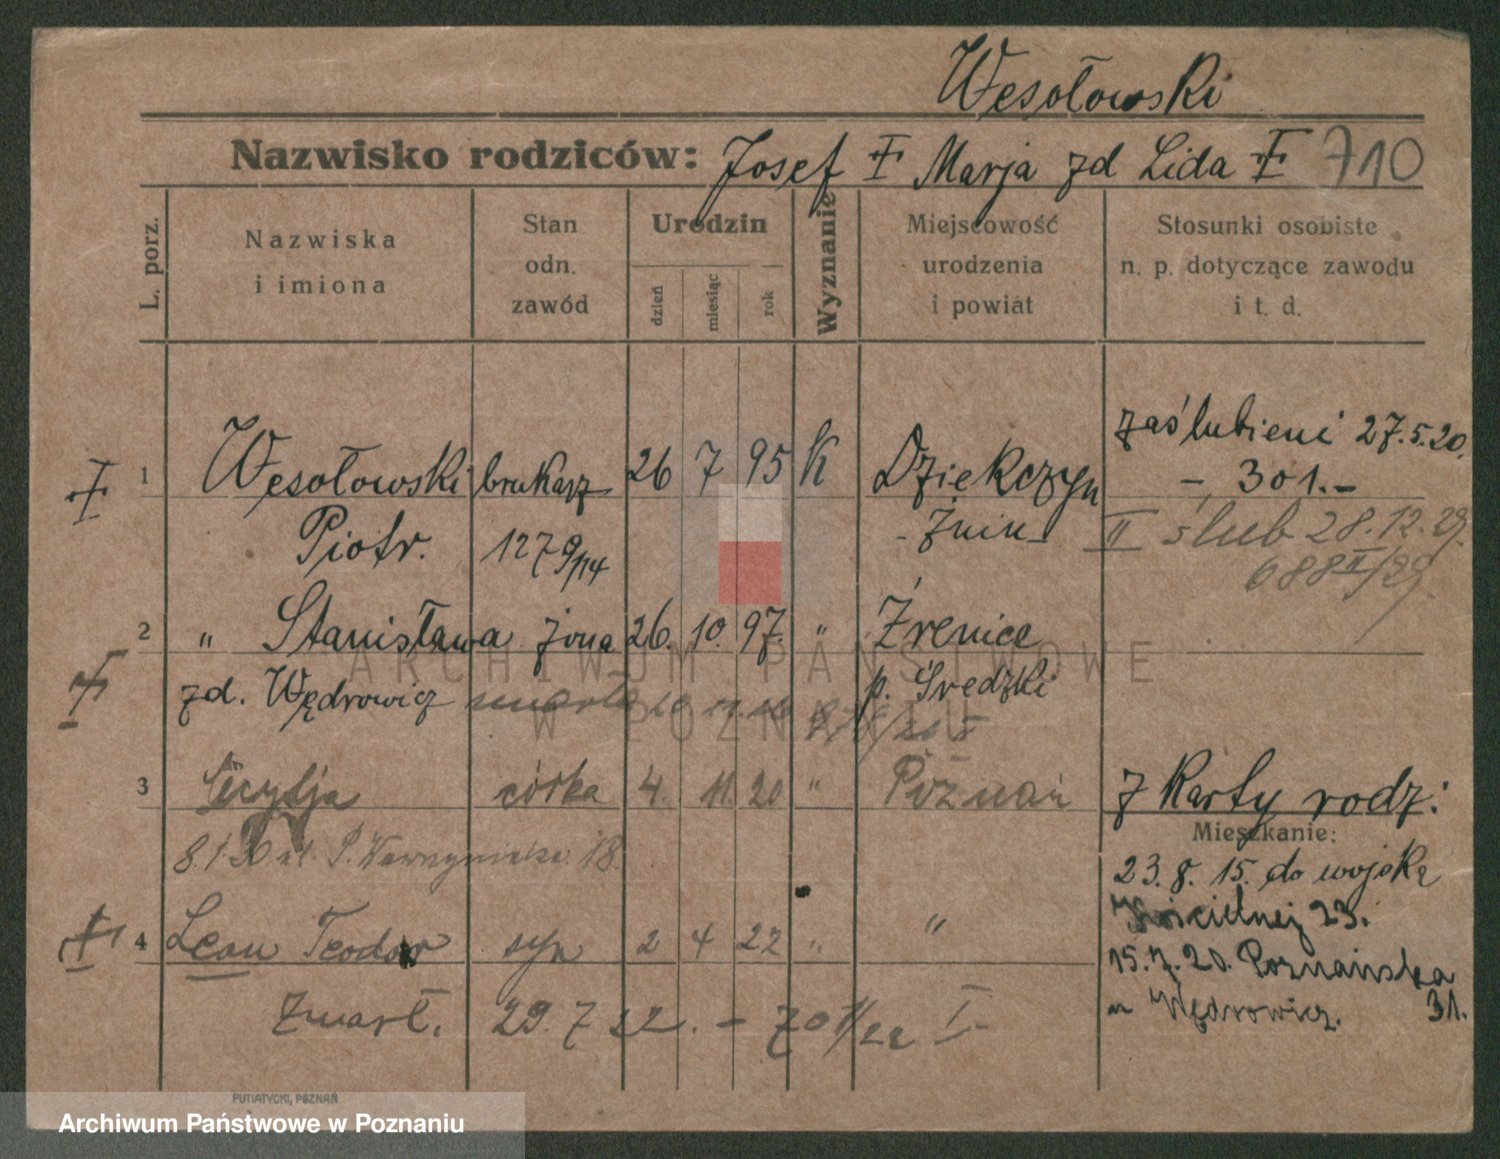 Wesołowski
Nazwisko rodziców: Josef Marja zd Lida 710
L. porz.
Nazwiska i imiona
Stan odn. zawód
Urodzin
dzień miesiąc rok
Wyznanie
Miejscowość urodzenia i powiat
Stosunki osobiste n. p. dotyczące zawodu i t. d.
zaślubieni 27.5.20.
1 Wesołowski brukarz 26 7 95 K Dziekczyn
- 301.-
Piotr. 127 9/14 - Żnin -
II ślub 28.12.29.
688 II/29.
2 " Stanisława żona 26. 10. 97. " Źrenice
zd. Wędrowicz zmarła p. Średzki
3 Cecylja córka 4. 11. 20 " Poznań
z Karty rodz:
Mieszkanie:
8.1.20 ul. P. Wawrzyniaka 18.
23.8.15. do wojska
Kościelnej 23.
4 Leon Teodor syn 2 4 22 " "
15.7.20. Poznańska 31.
u Wędrowicz.
Zmarł. 29.7 22. - 701/22 I-
PUTIATYCKI, POZNAŃ
ARCHIWUM PAŃSTWOWE
W POZNANIU
Archiwum Państwowe w Poznaniu